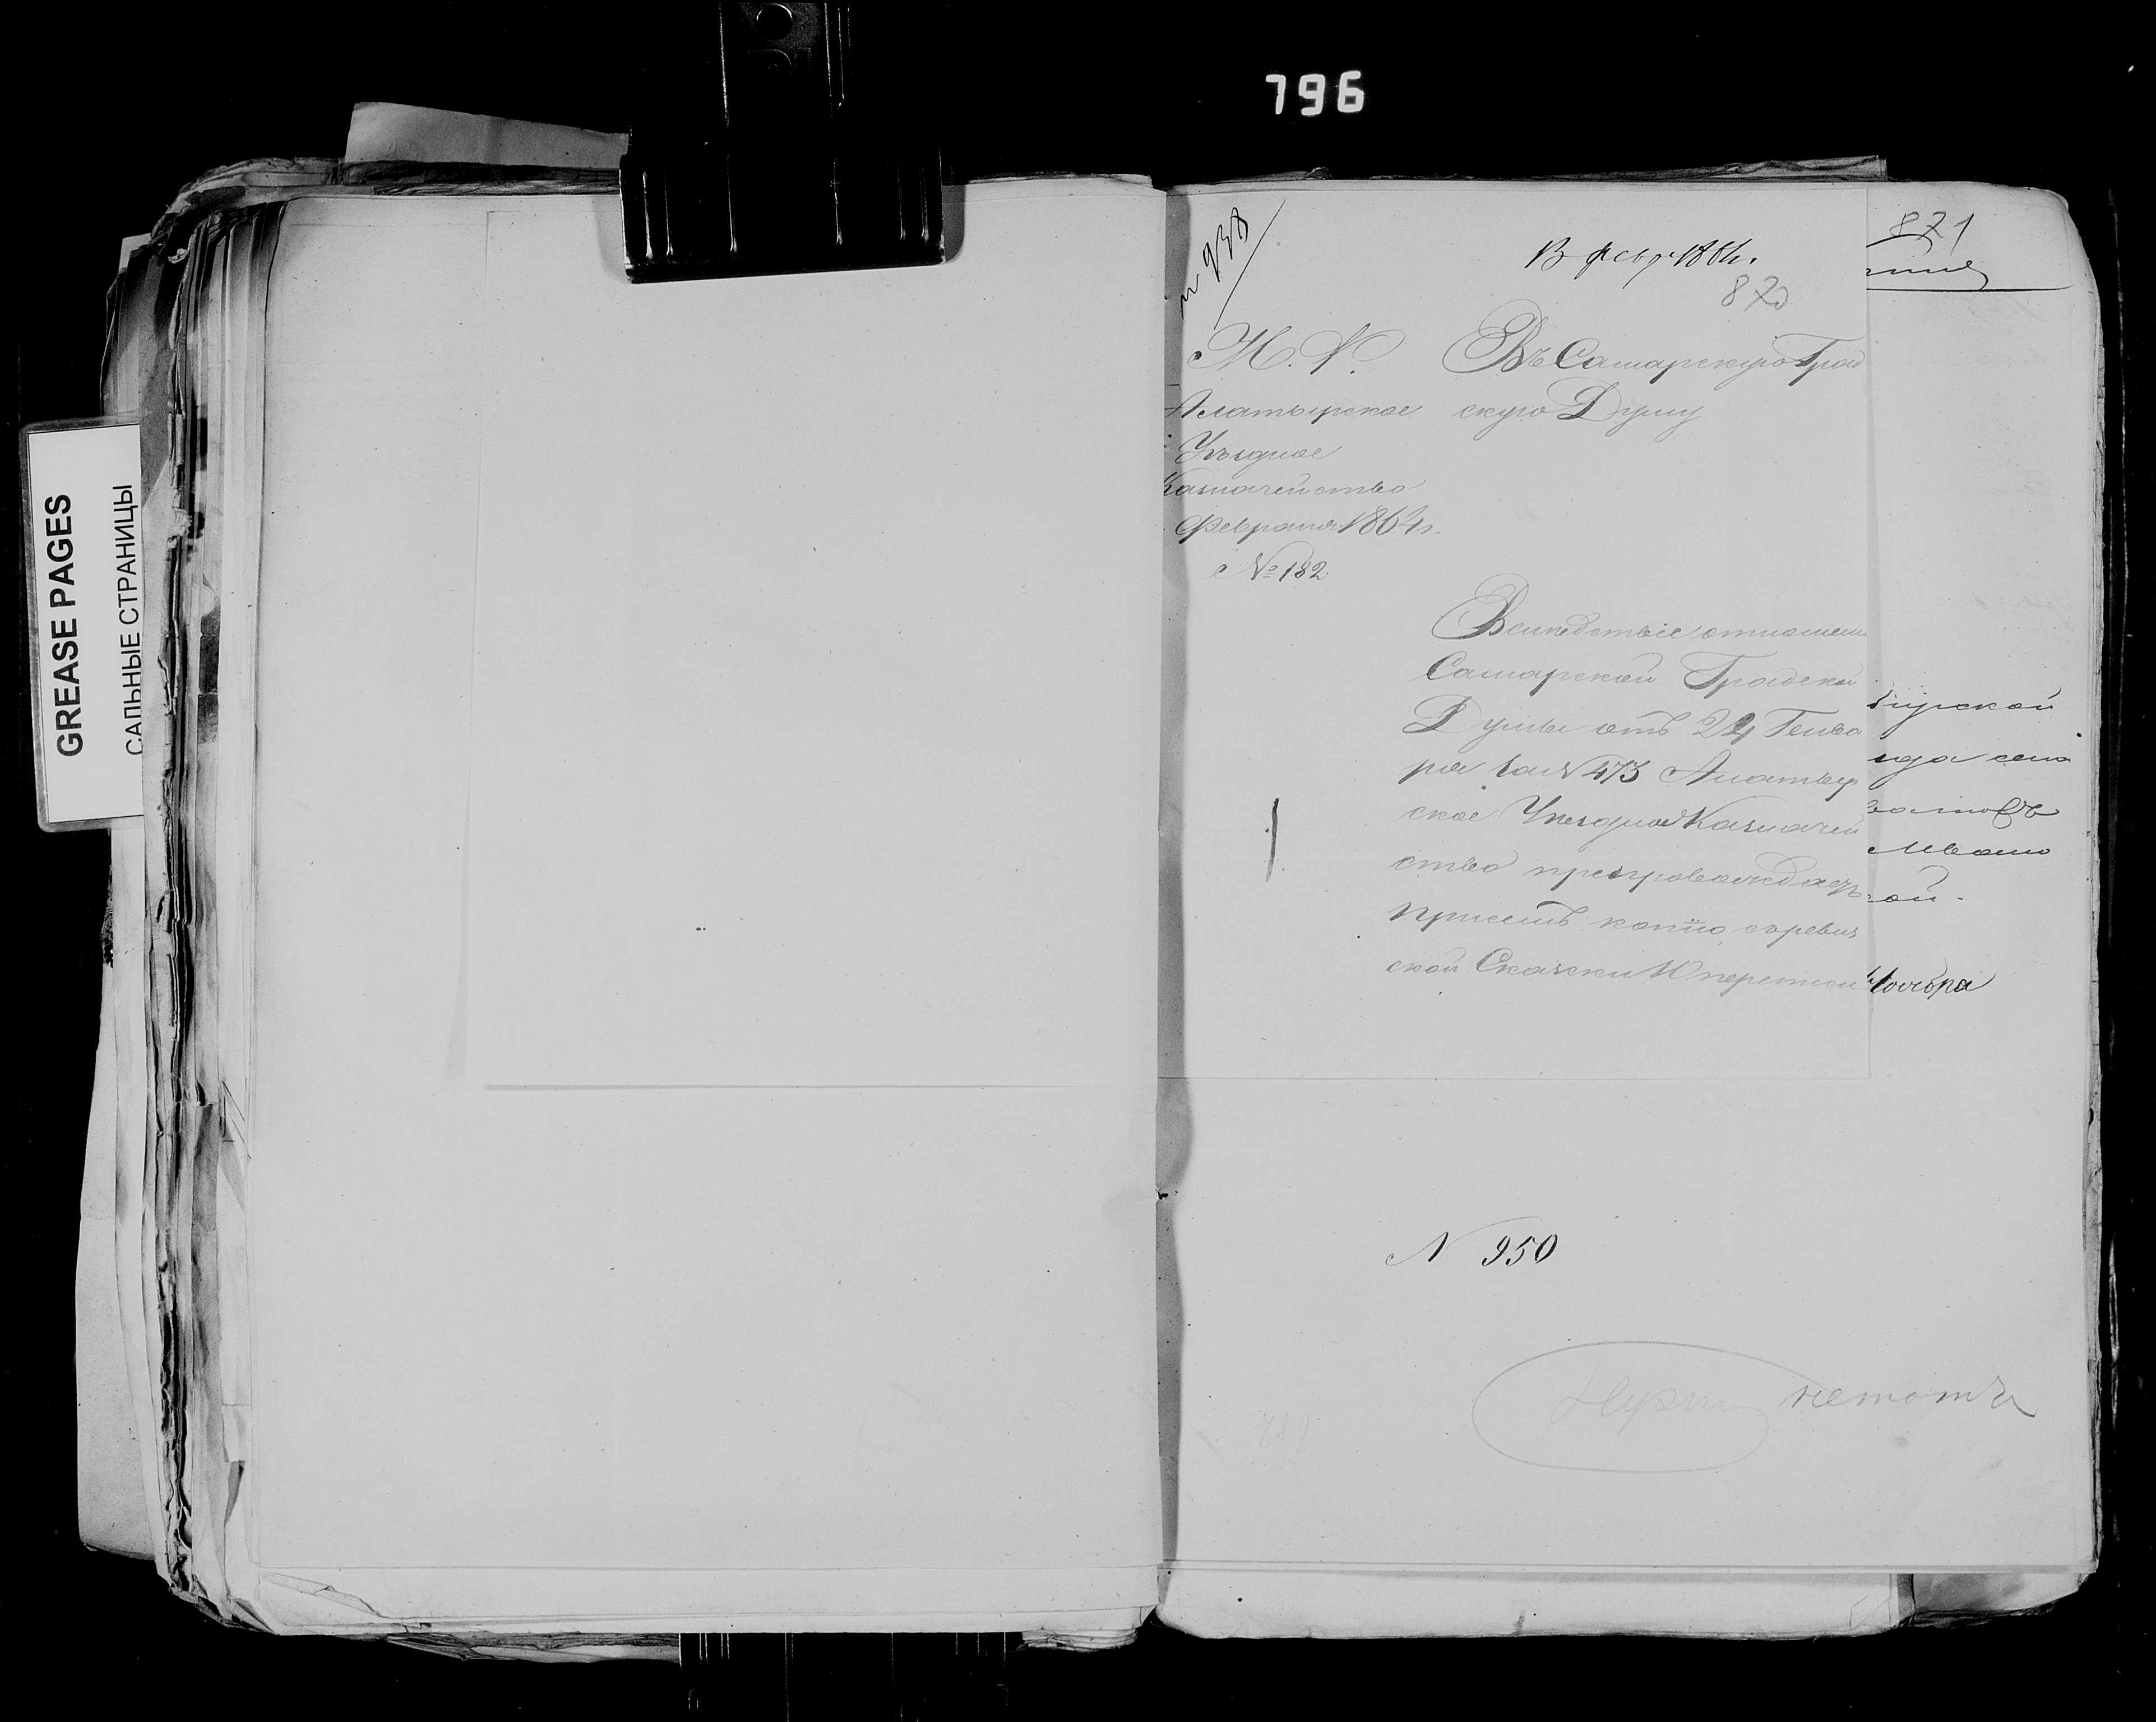 796
GREASE PAGES
САЛЬНЫЕ СТРАНИЦЫ
871
13 февр 1864.
870
М. Ф.
Алатырское
Уѣздное
Казначейство
Февраля 1864 г.
№ 182
Въ Самарскую Град
скую Думу
Вслѣдствіе отношені
Самарской Градской
Думы отъ 24 Генва
ря за № 473 Алатыр
ское Уѣздное Казначей
ство препровождаетъ
при семъ копію съ ревиз
ской Сказки 10 переписи
бирской
да села
ой.
Ноября
N 950